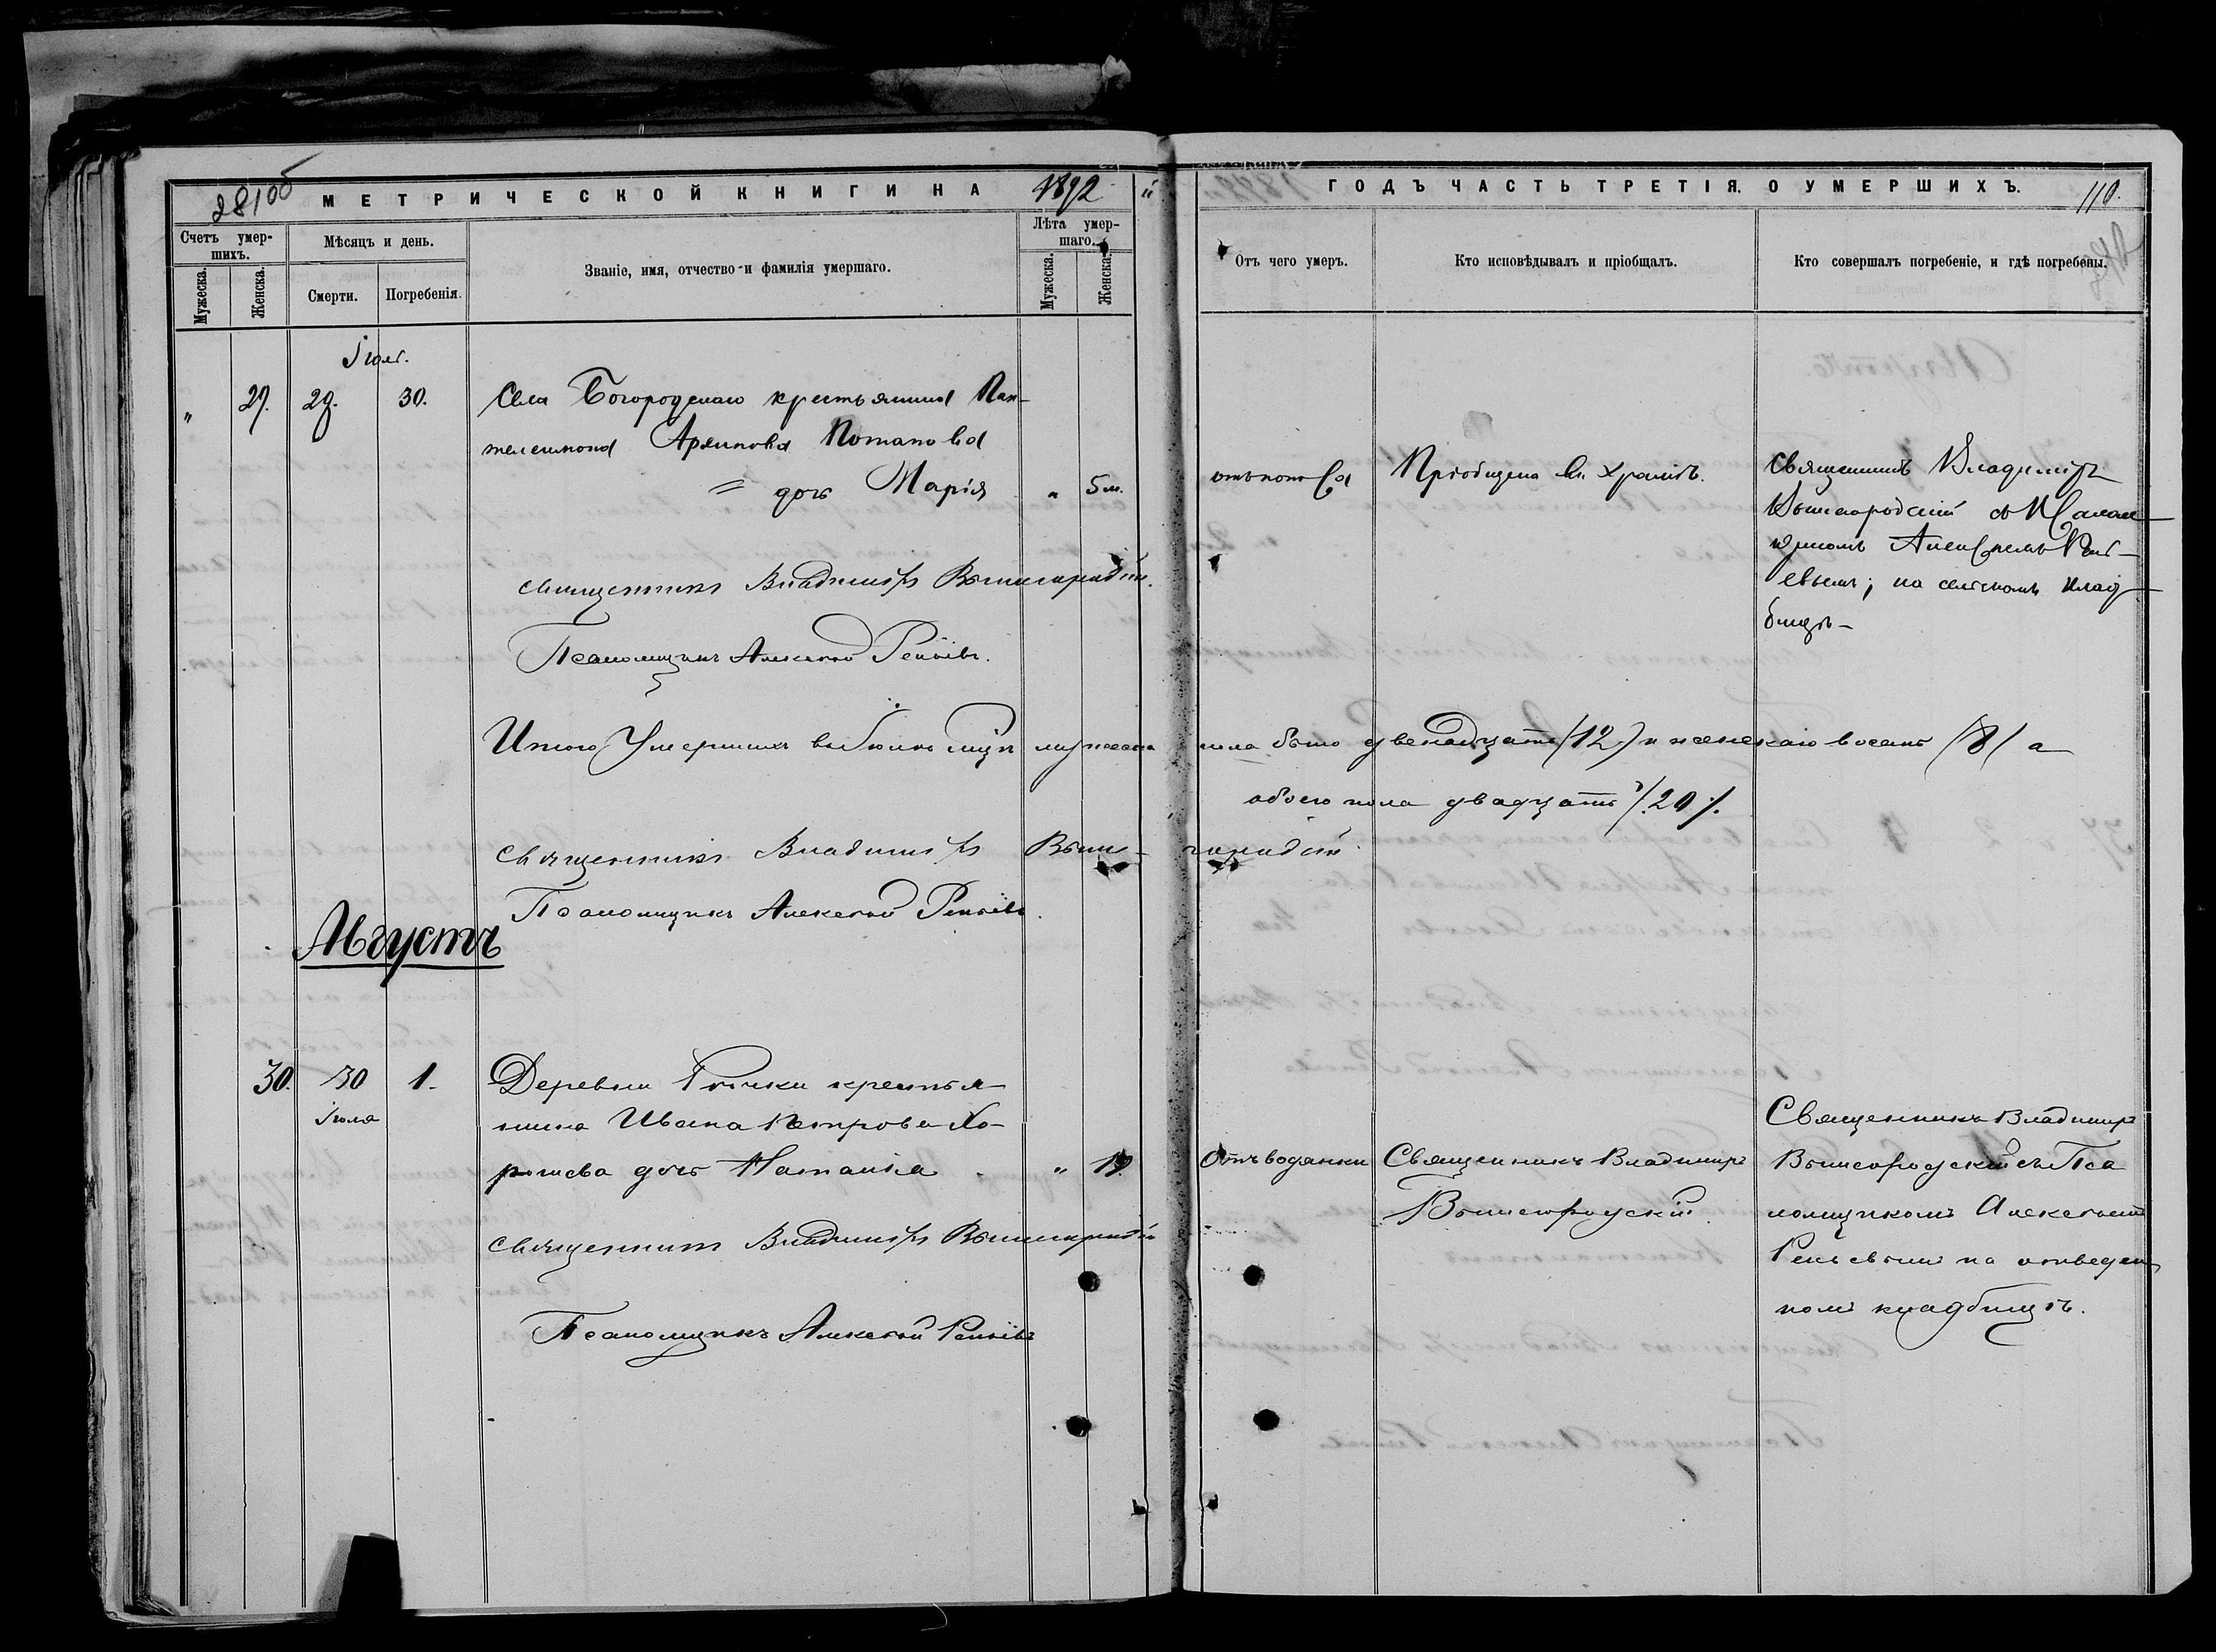 281об
МЕТРИЧЕСКОЙ КНИГИ НА 1892 й
ГОДЪ ЧАСТЬ ТРЕТІЯ. О УМЕРШИХЪ.
110.
Счетъ умер-
шихъ.
Мужеска.
Женска.
Мѣсяцъ и день.
Смерти.
Погребенія.
Званіе, имя, отчество и фамилія умершаго.
Лѣта умер-
шаго.
Мужеска.
Женска.
Отъ чего умеръ.
Кто исповѣдывалъ и пріобщалъ.
Кто совершалъ погребеніе, и гдѣ погребены.
Іюль.
" 29. 29. 30. Села Богородскаго крестьянина Пан-
телеимона Потапова
= дочь Марія " 5 м.
Пріобщена въ храмѣ.
Священникъ Владиміръ
Вышегородскій съ Псалом-
щикомъ Алексѣемъ Реп-
евымъ; на сельскомъ клад-
бищѣ-
Священникъ Владиміръ Вышегородскій.
Псаломщикъ Алексѣй Репьёвъ.
Итого умершихъ въ Іюлѣ мѣсяцѣ мужеска пола было двенадцать (12) и женскаго восемь (8) а
обоего пола двадцать /20/.
Священникъ Владиміръ Выше-городскій
Псаломщикъ Алексѣй Репьёвъ.
Августъ
30. 30 1. Деревни крестья-
Іюля
нина Ивана Петрова Хо-
рошева дочь Наталія " 19.
Отъ водянки
Священникъ Владиміръ
Вышегородскій
Священникъ Владиміръ
Вышегородскій съ Пса
ломщикомъ Алексѣемъ
Репьевымъ на отведен
номъ кладбищѣ.
Священникъ Владиміръ Вышегородскій
Псаломщикъ Алексѣй Репьёвъ